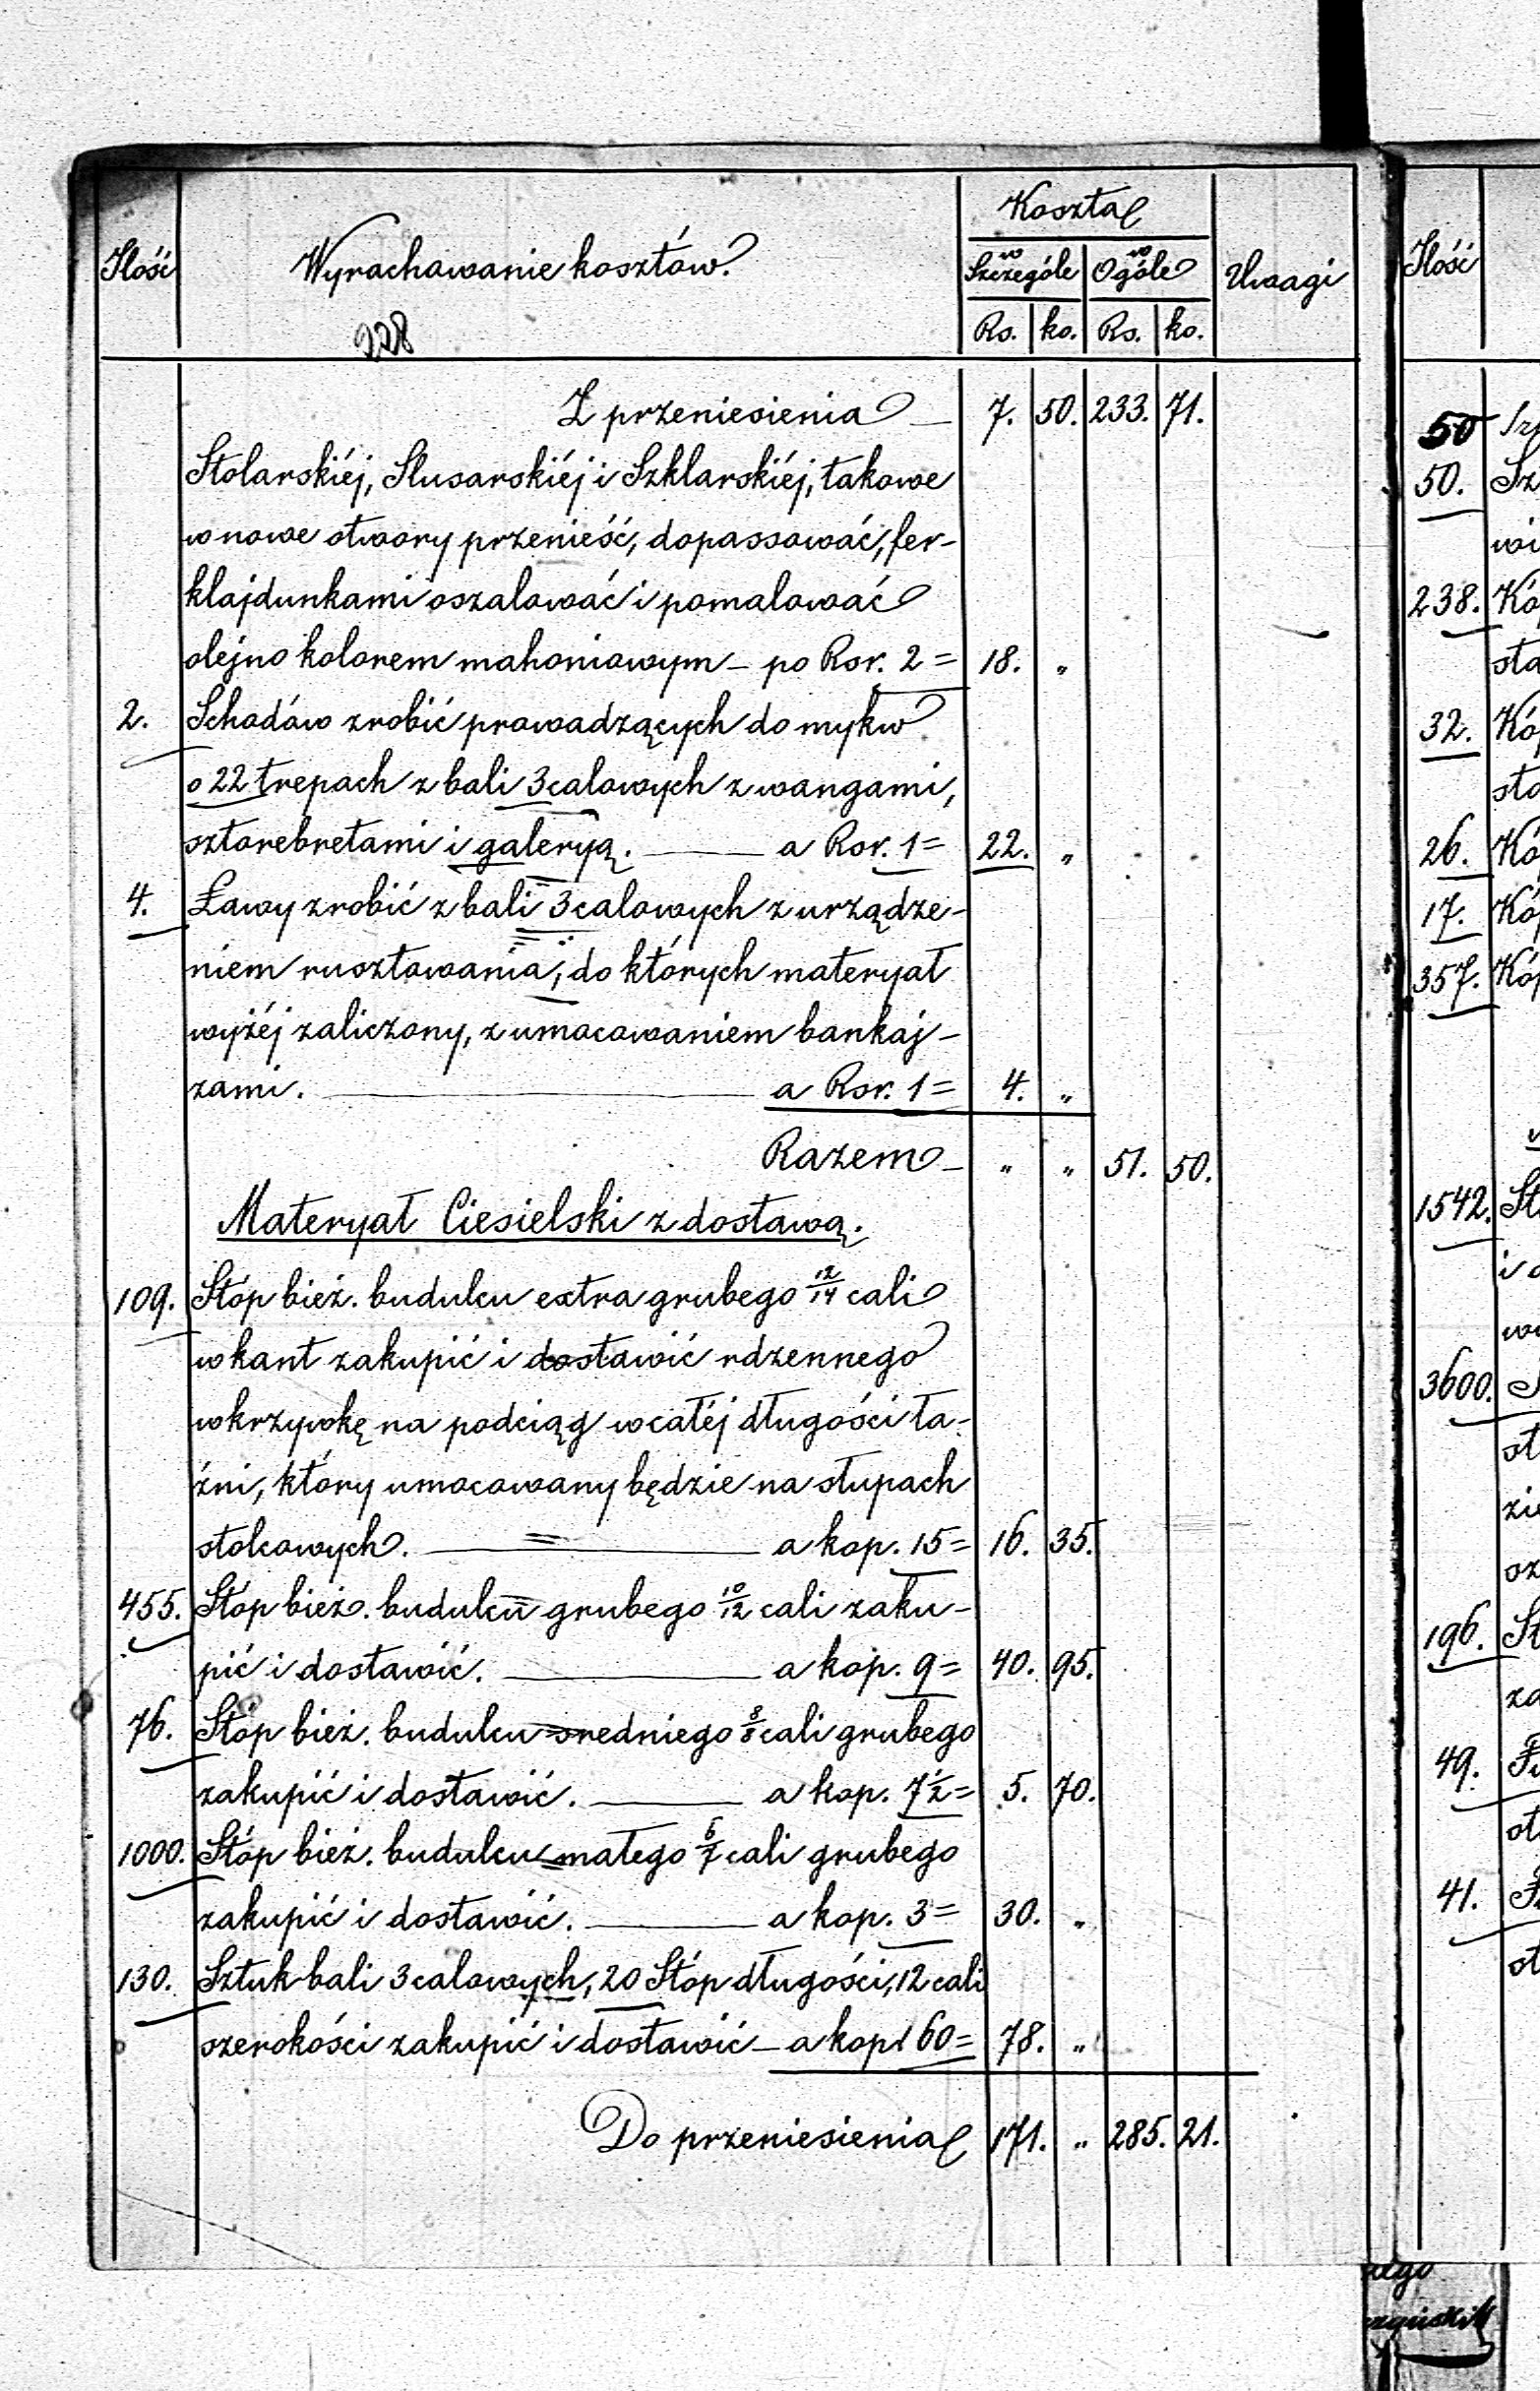 Koszta
Ilość Wyrachowanie kosztów. w Szczególe w Ogóle Uwagi
Rs. ko. Rs. ko.
228
Z przeniesienia — 7. 50. 233. 71.
Stolarskiéj, Slusarskiéj i Szklarskiéj, takowe
w nowe otwory przenieść, dopassować, fer-
klajdunkami oszalować i pomalować
olejno kolorem mahoniowym — po Rsr. 2 = 18. "
2. Schodów zrobić prowadzących do mykw
o 22 trepach z bali 3 calowych z wangami,
sztorebretami i galeryą. — a Rsr. 1 = 22. "
4. Ławy zrobić z bali 3 calowych z urządze-
niem rusztowania, do których materyał
wyżéj zaliczony, z umocowaniem bankaj-
zami. — a Rsr. 1 = 4. "
Razem — " " 51. 50.
Materyał Ciesielski z dostawą.
109. Stóp bież. budulcu extra grubego 12/14 cali
w kant zakupić i dostawić rdzennego
w krzywkę na podciąg w całéj długości ła-
źni, który umocowany będzie na słupach
stolcowych. — a kop. 15 = 16. 35.
455. Stóp bież. budulcu grubego 10/12 cali zaku-
pić i dostawić. — a kop. 9 = 40. 95.
76. Stóp bież. budulcu sredniego 8/8 cali grubego
zakupić i dostawić. — a kop. 7 1/2 = 5. 70.
1000. Stóp bież. budulcu małego 6/7 cali grubego
zakupić i dostawić. — a kop. 3 = 30. "
130. Sztuk bali 3 calowych, 20 Stóp długości, 12 cali
szerokości zakupić i dostawić — a kop. 60 = 78. "
Do przeniesienia 171. " 285. 21.
Ilość
50
50. Sz
wi
238. Kó
sta
32. Kó
sto
26. Kó
17. Kó
357. Kó
1542. St
i
3600.
st
196. St
za
49.
41.